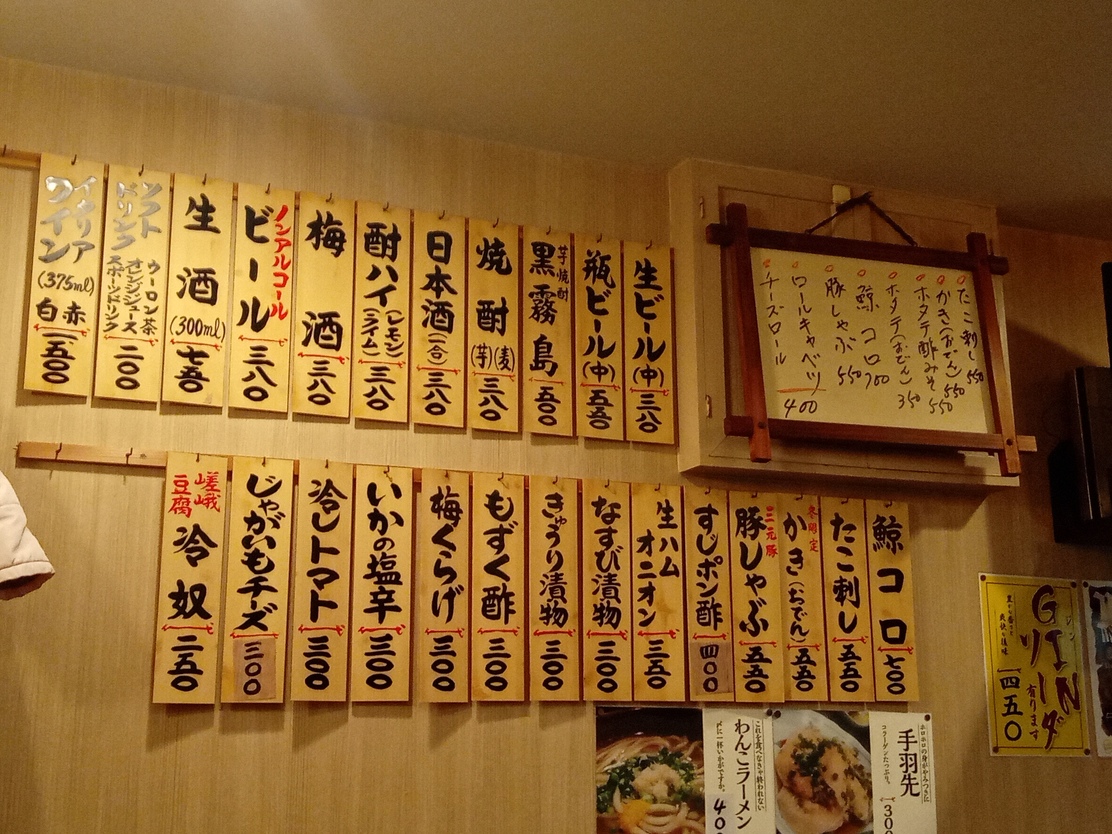 生ビール(中) 三八〇
瓶ビール(中) 五五〇
芋焼酎
黒霧島 五〇〇
焼酎(芋)(麦) 三八〇
日本酒(一合) 三八〇
酎ハイ(レモン)(ライム) 三八〇
梅酒 三八〇
ノンアルコール
ビール 三八〇
生酒(300ml) 七五〇
ソフト
ドリンク
ウーロン茶
オレンジジュース
スポーツドリンク
二〇〇
イタリア
ワイン
(375ml)
白 赤
一五〇〇
たこ刺し 550
かき(おでん) 550
ホタテ酢みそ 550
ホタテ(おでん) 350
鯨コロ 700
豚しゃぶ 550
ロールキャベツ 400
チーズロール
鯨コロ 七〇〇
たこ刺し 五五〇
冬限定
かき(おでん) 五五〇
三元豚
豚しゃぶ 五五〇
すじポン酢 四〇〇
生ハム
オニオン 三五〇
なすび漬物 三〇〇
きゅうり漬物 三〇〇
もずく酢 三〇〇
梅くらげ 三〇〇
いかの塩辛 三〇〇
冷しトマト 三〇〇
じゃがいもチーズ 三〇〇
嵯峨
豆腐
冷奴 二五〇
GIN
ジン
有ります
一四五〇
手羽先
コラーゲンたっぷり。
300
これを食べなきゃ終われない
わんこラーメン
〆に一杯いかがですか。
400